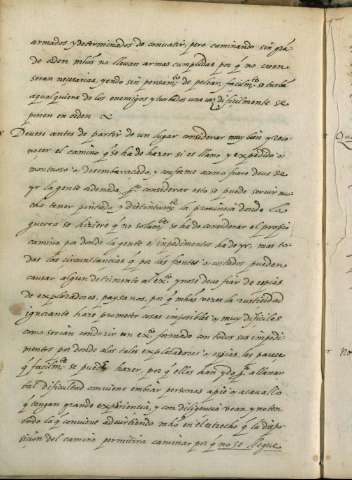 armados y determinados de convatir, pero caminando sin gra
de orden ni sus no llevan armas cumplidas por q̃ no creen
seran necesarias, yendo sin pensamᵗᵒ de pelear, facilmᵗᵉ se turba
aqualquiera de los enemigos y turbados una vez dificilmente se
ponen en orden &
Deuese antes de partir de un lugar considerar muy bien y reco
noçer el camino que se ha de hazer si es llano y expedido o
montuoso o desembaraçado, y conforme a como fuere deue se
yr la gente ordenada. Pᵃ considerar esto se puede servir mu
cho tener pintada, y distintamᵗᵉ la provinçia donde la
guerra se hiziere q̃ no solamᵗᵉ se ha de considerar el proprio
camino por donde la gente e impedimentos ha de yr. mas to
das las circunstancias q̃ por las frentes o costados pueden
causar algun detrimento al exᵗᵒ y no se deue fiar de espias
de exploradores, paysanos, por q̃ m̃has vezes la rusticidad
ignorante haze prometer cosas imposibles o muy dificiles
como serian conducir un exᵗᵒ formado con todos sus impedi
mentos por donde alos tales exploradores o espias les pareçe
q̃ facilmᵗᵉ se puede hazer, por q̃ ellos han ydo pᵃ allanar
tal dificultad conviene embiar personas apie o acavallo
q̃ tengan grande experiençia, y con diligencia vean y noten
todo lo q̃ conviene advirtiendo mas en el estrecho q̃ la dispo
siçion del camino permitira caminar por q̃ no se llegue